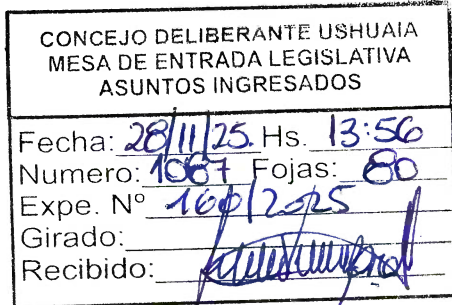 CONCEJO DELIBERANTE USHUAIA
MESA DE ENTRADA LEGISLATIVA
ASUNTOS INGRESADOS
Fecha: 28/11/25. Hs. 13:56
Numero: 1067 Fojas: 80
Expe. Nº 160/2025
Girado:
Recibido: